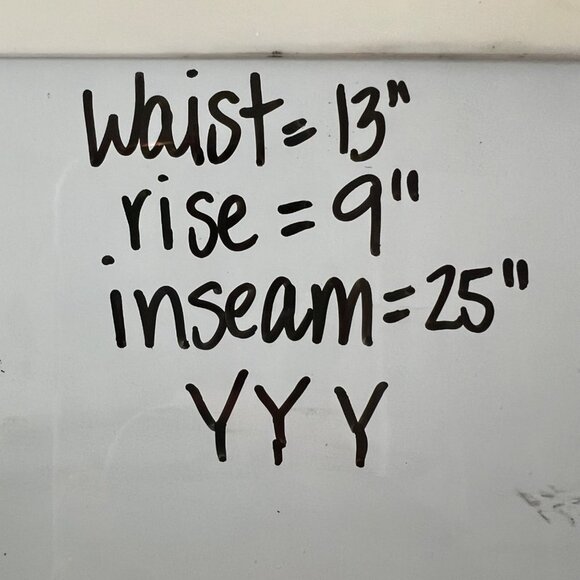 Waist = 13"
rise = 9"
inseam = 25"
Y Y Y